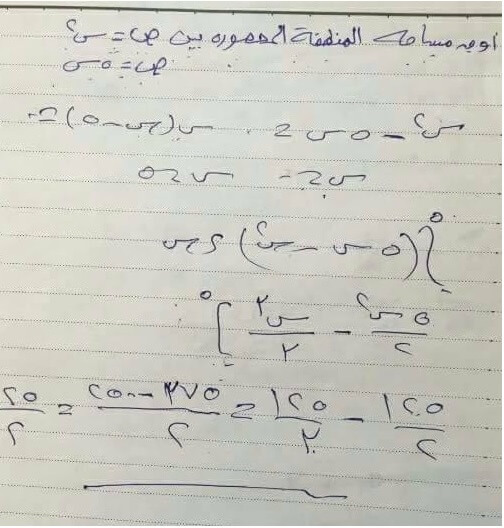 أوجد مساحة المنطقة المحصورة بين ص = س٢
ص = ٥س
س٢ - ٥س = ٠ س(س - ٥) = ٠
س = ٠ س = ٥
∫ (٥س - س٢) ءس
٥س٢/٢ - س٣/٣
١٢٥/٢ - ١٢٥/٣ = ٣٧٥ - ٢٥٠